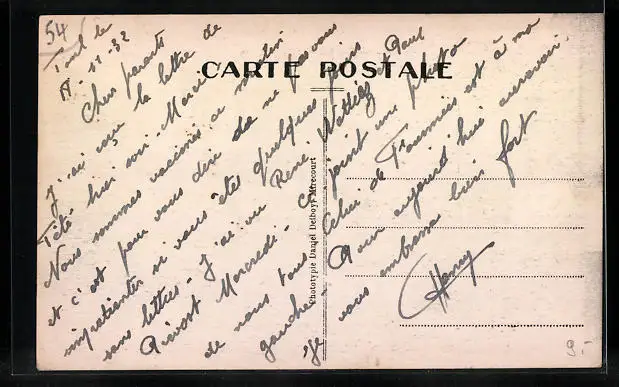 54
CARTE POSTALE
Toul le
17-11-32
Chers parents
J'ai reçu la lettre de
Tété hier soir. Merci
Nous sommes vaccinés ce matin
et c'est pour vous dire de ne pas vous
impatienter si vous êtes quelques jours
sans lettres. J'ai vu René Wattiez et Paul
Mercredi. Ci joint une photo
de nous tous. Celui de Fourmies est à ma
gauche. Pour aujourd'hui au revoir.
Je vous embrasse bien fort
Henry
Phototypie Daniel Delboy, Mirecourt